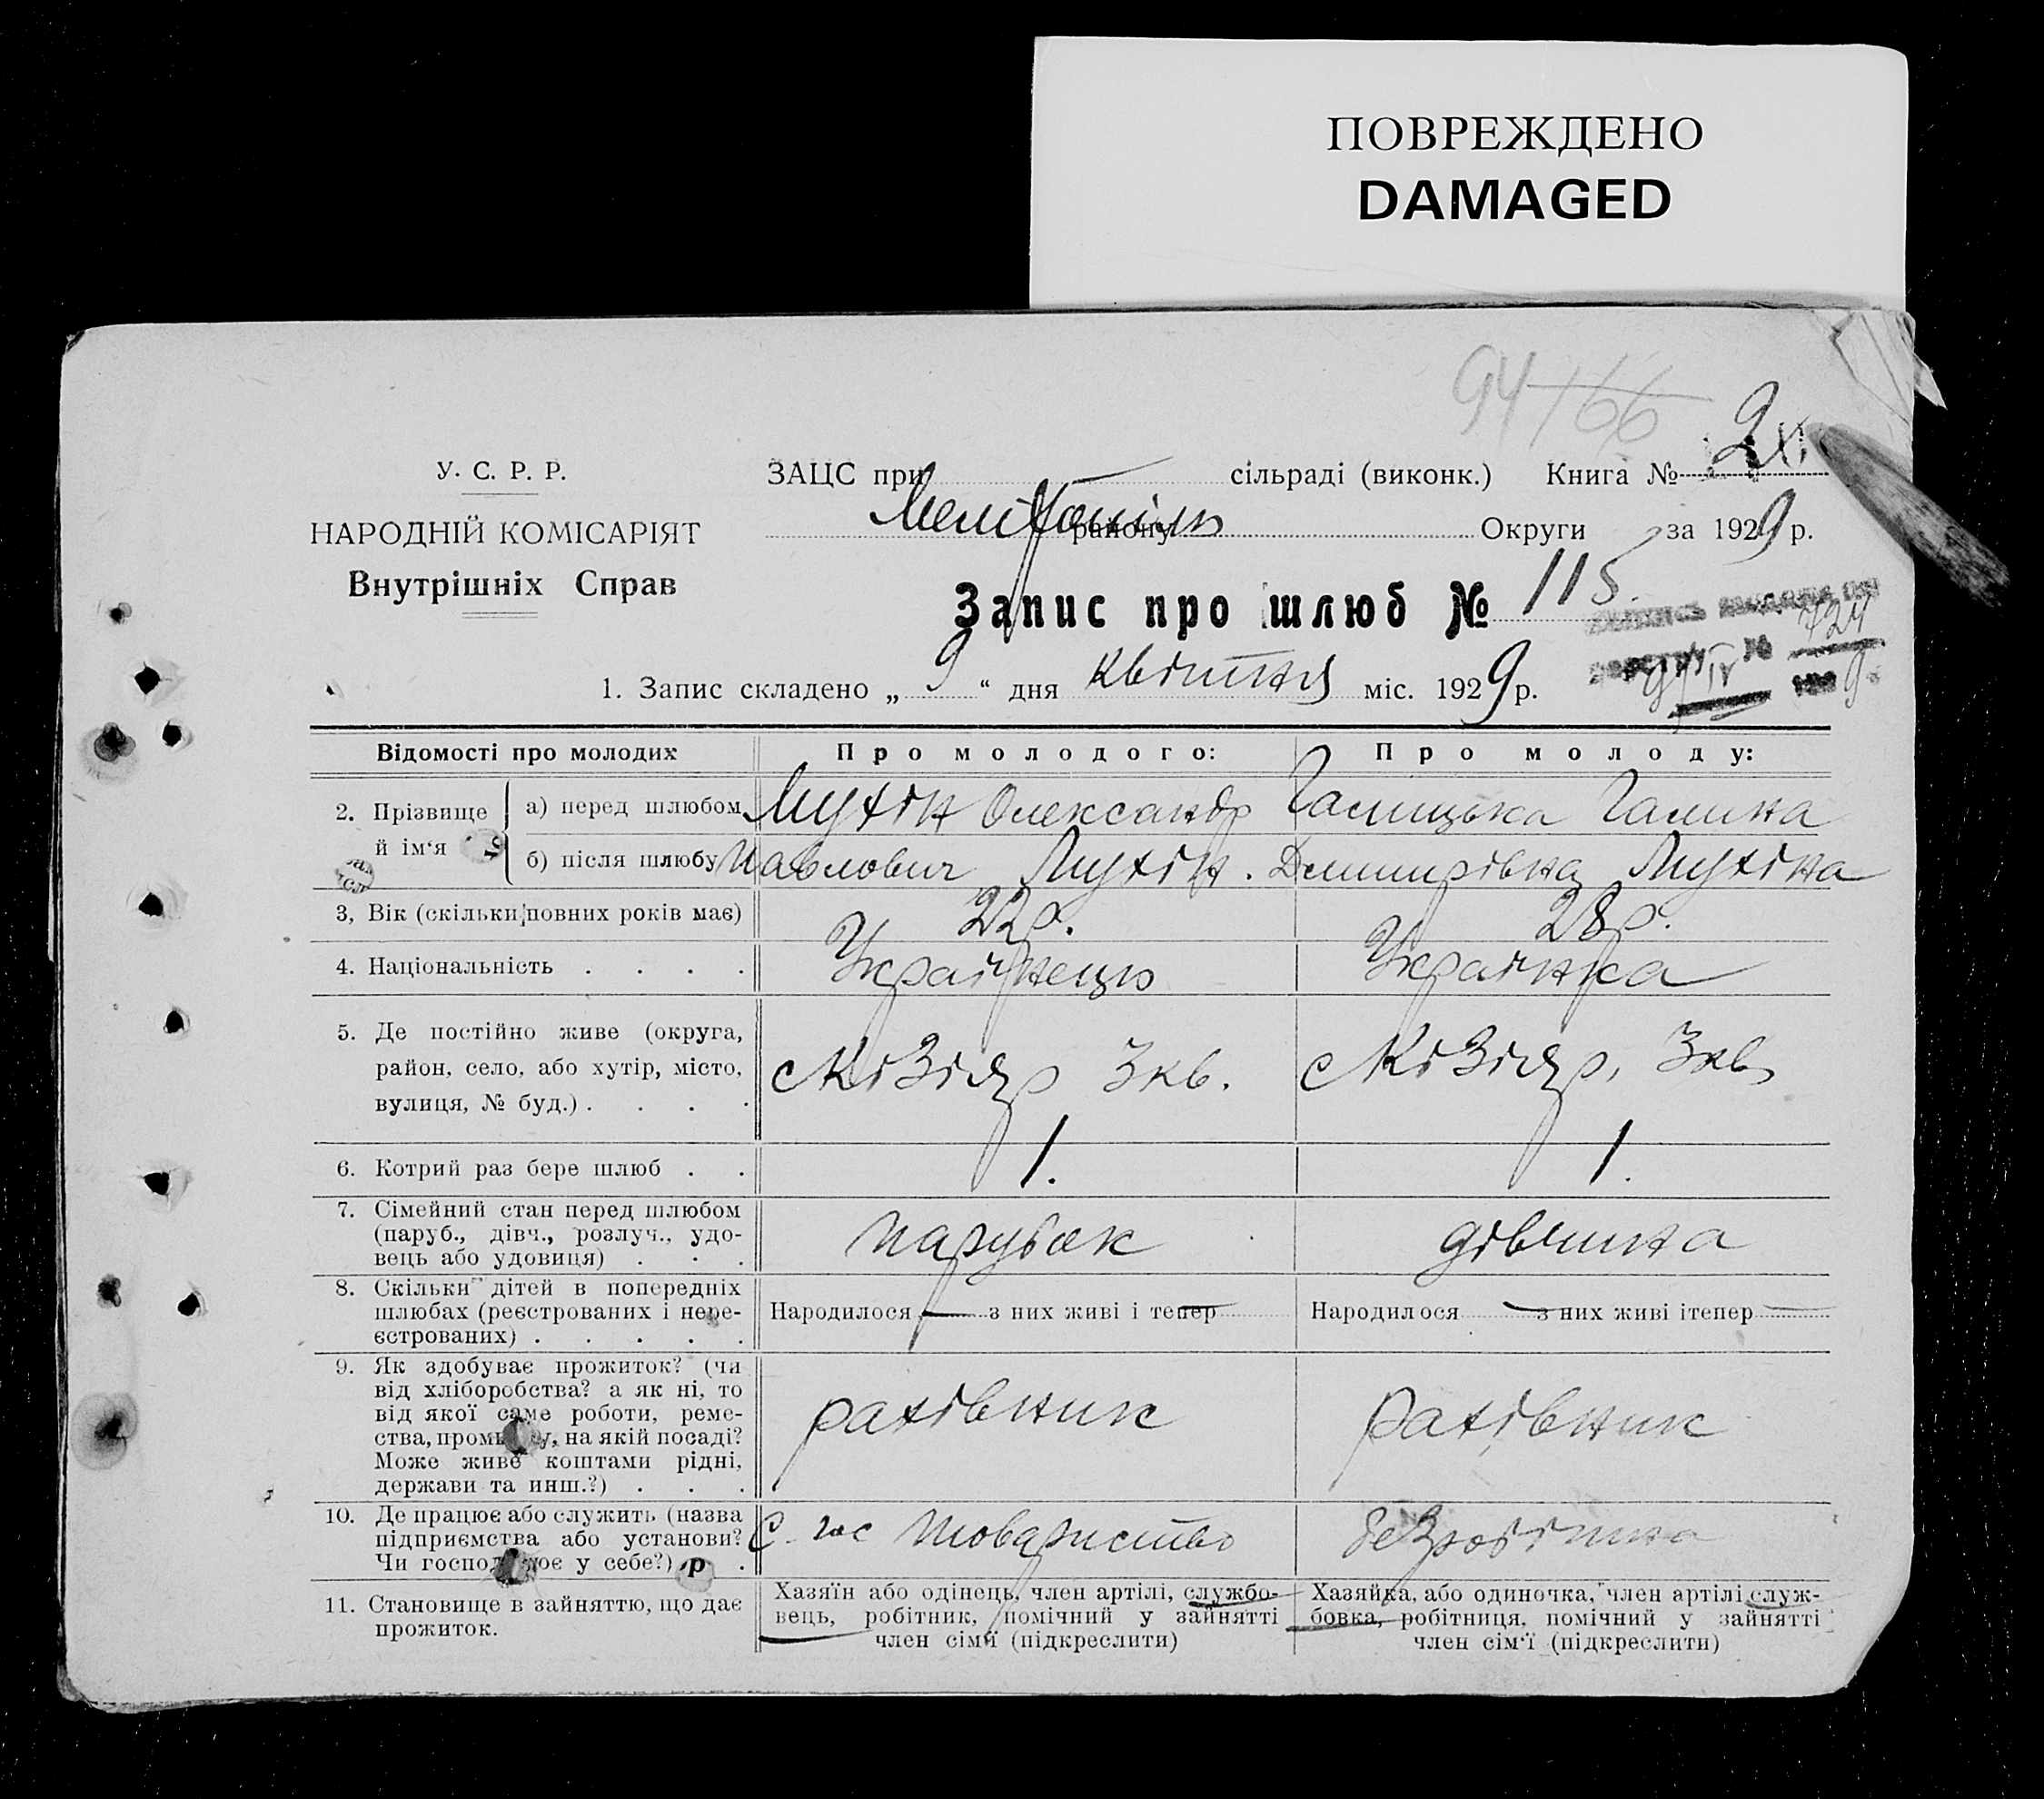 ПОВРЕЖДЕНО
DAMAGED
94 166
У. С. Р. Р.
ЗАЦС при сільраді (виконк.) Книга № 2
НАРОДНІЙ КОМІСАРІЯТ
Мелітопіль району Округи за 1929 р.
Внутрішніх Справ
Запис про шлюб № 115.
724
1. Запис складено „ 9 “ дня квітня міс. 1929 р.
Відомості про молодих
Про молодого:
Про молоду:
2. Прізвище й ім‘я
а) перед шлюбом
Мухін Олександр
Галицька Галина
б) після шлюбу
Павлович Мухін.
Демитрівна Мухіна
3, Вік (скільки повних років має)
22 р.
28 р.
4. Національність . . . .
Українець
Українка
5. Де постійно живе (округа,
район, село, або хутір, місто,
вулиця, № буд.) . . . .
с Кізіяр 3 кв.
с Кізіяр, 3 кв
6. Котрий раз бере шлюб . .
1.
1.
7. Сімейний стан перед шлюбом
(паруб., дівч., розлуч., удо-
вець або удовиця) . . .
парубок
дівчина
8. Скільки дітей в попередніх
шлюбах (реєстрованих і нере-
єстрованих) . . . . .
Народилося — з них живі і тепер —
Народилося — з них живі ітепер —
9. Як здобуває прожиток? (чи
від хліборобства? а як ні, то
від якої саме роботи, реме-
ства, на якій посаді?
Може живе коштами рідні,
держави та инш.?) . . .
рахівник
рахівник
10. Де працює або служить (назва
підприємства або установи?
Чи у себе?) .
С. гос товариство
безробітна
11. Становище в зайняттю, що дає
прожиток.
Хазяїн або одінець, член артілі, службо-
вець, робітник, помічний у зайнятті
член сімї (підкреслити)
Хазяйка, або одиночка, член артілі служ-
бовка, робітниця, помічний у зайнятті
член сім‘ї (підкреслити)